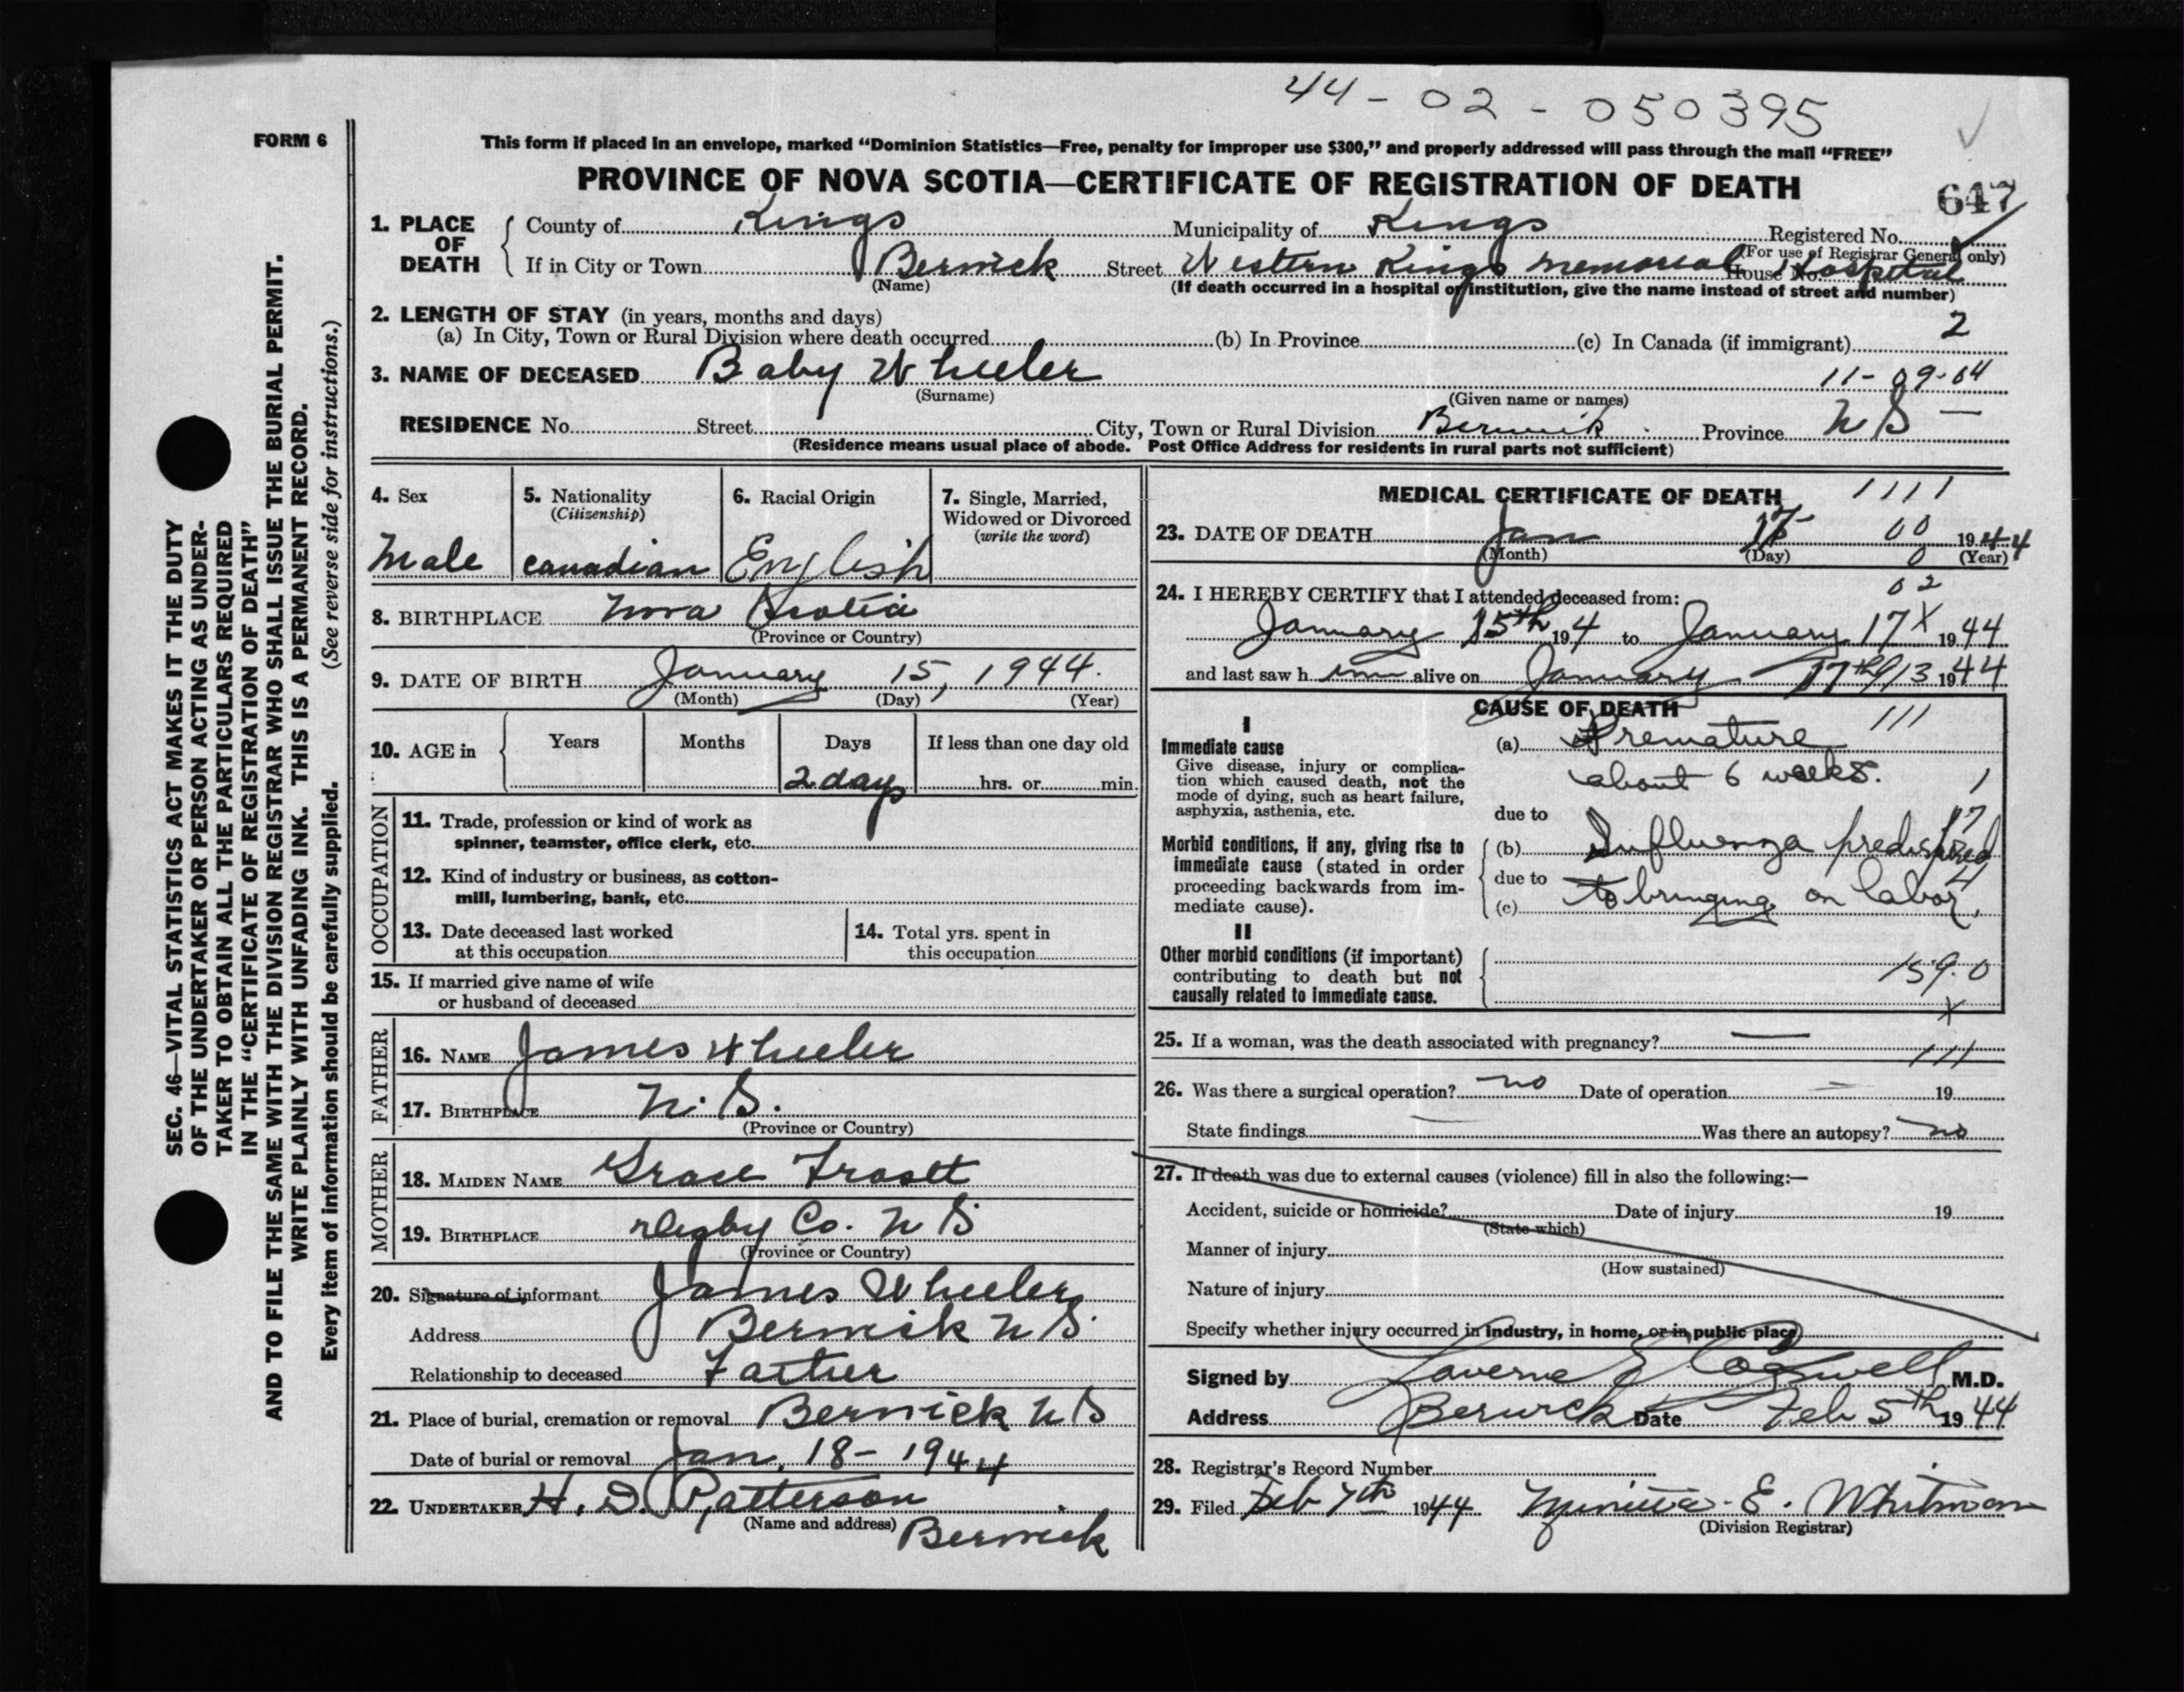 44-02-050395
FORM 6
This form if placed in an envelope, marked "Dominion Statistics—Free, penalty for improper use $300," and properly addressed will pass through the mail "FREE"
PROVINCE OF NOVA SCOTIA—CERTIFICATE OF REGISTRATION OF DEATH
647
1. PLACE OF DEATH County of Kings Municipality of Kings Registered No.
(For use of Registrar General only)
If in City or Town Berwick Street Western Kings Memorial Hospital House No.
(Name) (If death occurred in a hospital or institution, give the name instead of street and number)
2. LENGTH OF STAY (in years, months and days)
(a) In City, Town or Rural Division where death occurred (b) In Province (c) In Canada (if immigrant) 2
3. NAME OF DECEASED Baby Wheeler 11-09-04
(Surname) (Given name or names)
RESIDENCE No. Street City, Town or Rural Division Berwick Province N S —
(Residence means usual place of abode. Post Office Address for residents in rural parts not sufficient)
SEC. 46—VITAL STATISTICS ACT MAKES IT THE DUTY
OF THE UNDERTAKER OR PERSON ACTING AS UNDER-
TAKER TO OBTAIN ALL THE PARTICULARS REQUIRED
IN THE "CERTIFICATE OF REGISTRATION OF DEATH"
AND TO FILE THE SAME WITH THE DIVISION REGISTRAR WHO SHALL ISSUE THE BURIAL PERMIT.
WRITE PLAINLY WITH UNFADING INK. THIS IS A PERMANENT RECORD.
Every item of information should be carefully supplied. (See reverse side for instructions.)
4. Sex Male
5. Nationality (Citizenship) Canadian
6. Racial Origin English
7. Single, Married, Widowed or Divorced (write the word)
8. BIRTHPLACE Nova Scotia
(Province or Country)
9. DATE OF BIRTH January 15, 1944.
(Month) (Day) (Year)
10. AGE in Years Months Days If less than one day old
2 days hrs. or min.
OCCUPATION
11. Trade, profession or kind of work as
spinner, teamster, office clerk, etc.
12. Kind of industry or business, as cotton-
mill, lumbering, bank, etc.
13. Date deceased last worked
at this occupation
14. Total yrs. spent in
this occupation
15. If married give name of wife
or husband of deceased
FATHER
16. NAME James Wheeler
17. BIRTHPLACE N. S.
(Province or Country)
MOTHER
18. MAIDEN NAME Grace Trask
19. BIRTHPLACE Digby Co. N S
(Province or Country)
20. Signature of informant James Wheeler
Address Berwick N S.
Relationship to deceased Father
21. Place of burial, cremation or removal Berwick N S
Date of burial or removal Jan. 18- 1944
22. UNDERTAKER H. D. Patterson
(Name and address) Berwick
MEDICAL CERTIFICATE OF DEATH 1111
23. DATE OF DEATH Jan 17 00 1944
(Month) (Day) 0 (Year)
24. I HEREBY CERTIFY that I attended deceased from: 02
January 15th 194 to January 17 X 1944
and last saw him alive on January 17th 913 1944
CAUSE OF DEATH
111
I
Immediate cause
Give disease, injury or complica-
tion which caused death, not the
mode of dying, such as heart failure,
asphyxia, asthenia, etc.
(a) Premature
about 6 weeks. 1
due to 17
Morbid conditions, if any, giving rise to
immediate cause (stated in order
proceeding backwards from im-
mediate cause).
(b) Influenza predisposed
due to 4
(c) to bringing on labor.
II
Other morbid conditions (if important)
contributing to death but not
causally related to immediate cause.
159.0
X
25. If a woman, was the death associated with pregnancy? —
111
26. Was there a surgical operation? no Date of operation — 19
State findings — Was there an autopsy? no
27. If death was due to external causes (violence) fill in also the following:—
Accident, suicide or homicide? Date of injury 19
(State which)
Manner of injury
(How sustained)
Nature of injury
Specify whether injury occurred in industry, in home, or in public place
Signed by Laverne E Cogswell M.D.
Address Berwick Date Feb 5th 1944
28. Registrar's Record Number
29. Filed Feb 7th 1944 E. Whitman
(Division Registrar)